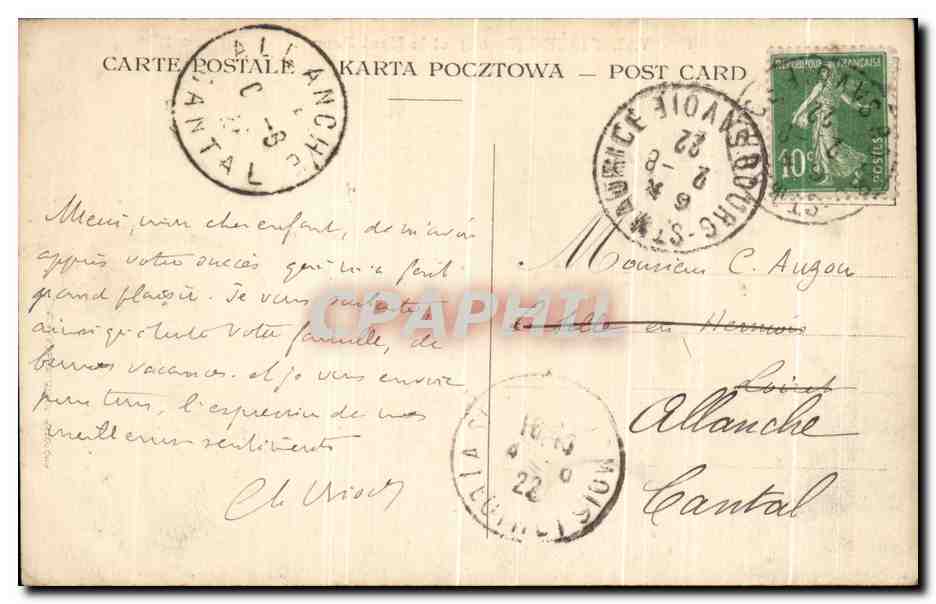 CARTE POSTALE — KARTA POCZTOWA — POST CARD
ALLANCHE
CANTAL
BOURG-ST-MAURICE SAVOIE
6
2 -8
22
REPUBLIQUE FRANÇAISE
10c
POSTES
Merci, mon cher enfant, de m'avoir
appris votre succès qui m'a fait
grand plaisir. Je vous souhaite
ainsi qu'à toute votre famille, de
bonnes vacances. et je vous envoie
pour tous, l'expression de mes
meilleurs sentiments
Monsieur C. Auzou
en
Loiret
Allanche
Cantal
22
LOIRET
CPAPHIL